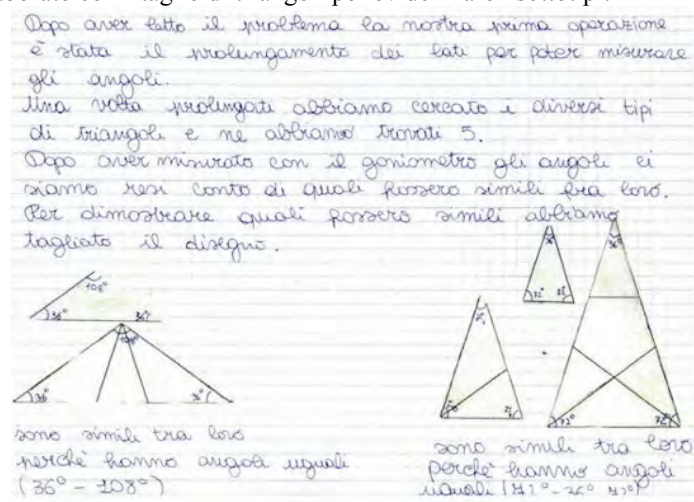 Dopo aver letto il problema la nostra prima operazione
è stata il prolungamento dei lati per poter misurare
gli angoli.
Una volta prolungati abbiamo cercato i diversi tipi
di triangoli e ne abbiamo trovati 5.
Dopo aver misurato con il goniometro gli angoli ci
siamo resi conto di quali fossero simili fra loro.
Per dimostrare quali fossero simili abbiamo
tagliato il disegno.
108°
36° 36°
36°
72°
72° 72°
sono simili tra loro
perché hanno angoli uguali
(36° - 108°)
sono simili tra loro
perché hanno angoli
uguali (72° - 36° 72°)